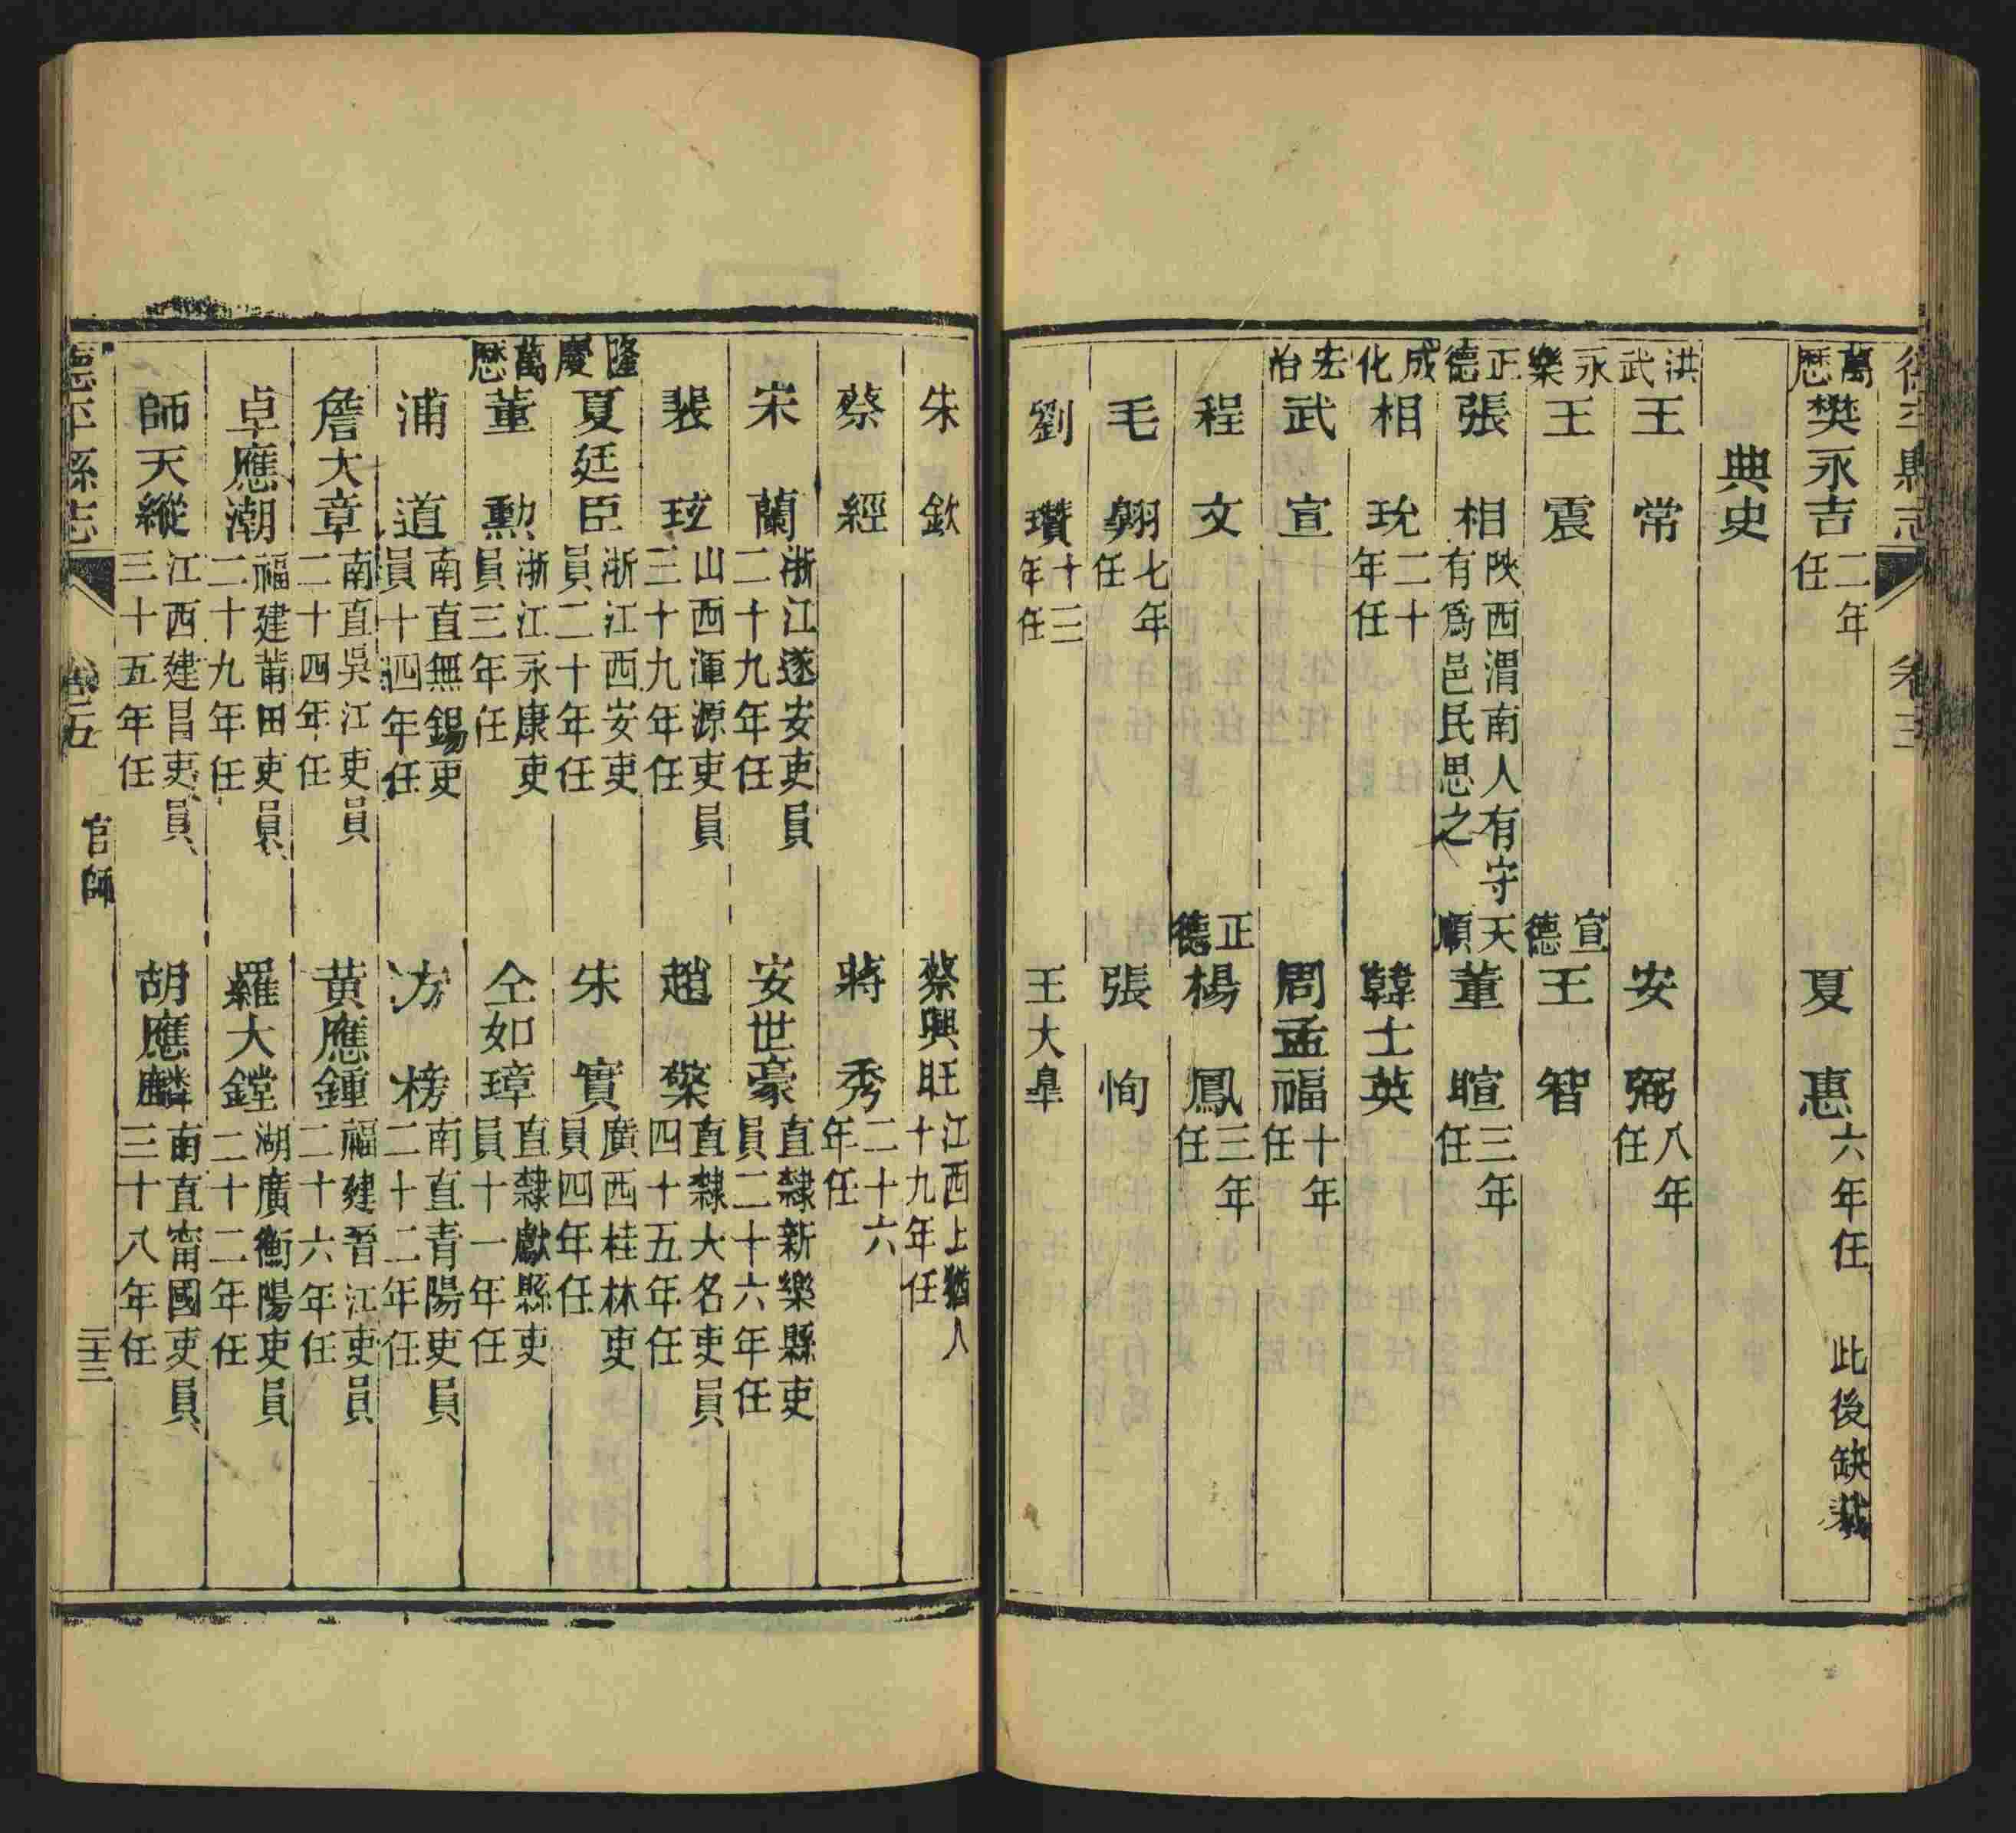 德平縣志 卷五
萬歷 樊永吉 二年任 夏惠 六年任 此後缺裁
典史
洪武 王常 安弼 八年任
永樂 王震 宣德 王智
正德 張相 陜西渭南人有守有為邑民思之 天順 董暄 三年任
成化 相玧 二十年任 韓士英
宏治 武宣 周孟福 十年任
程文 正德 楊鳳 三年任
毛翱 七年任 張恂
劉瓚 十三年任 王大臯
朱欽 蔡興旺 江西上猶人十九年任
蔡經 蔣秀 二十六年任
宋蘭 浙江遂安吏員二十九年任 安世豪 直隸新樂縣吏員二十六年任
裴玹 山西渾源吏員三十九年任 趙槃 直隸大名吏員四十五年任
隆慶 夏廷臣 浙江西安吏員二十年任 朱實 廣西桂林吏員四年任
萬歷 董勲 浙江永康吏員三年任 仝如璋 直隸獻縣吏員十一年任
浦道 南直無錫吏員十四年任 方榜 南直青陽吏員二十二年任
詹大章 南直吳江吏員二十四年任 黃應鍾 福建晉江吏員二十六年任
卓應潮 福建莆田吏員二十九年任 羅大鏜 湖廣衡陽吏員二十二年任
師天縱 江西建昌吏員三十五年任 胡應麟 南直甯國吏員三十八年任
德平縣志 卷五 官師 二十三